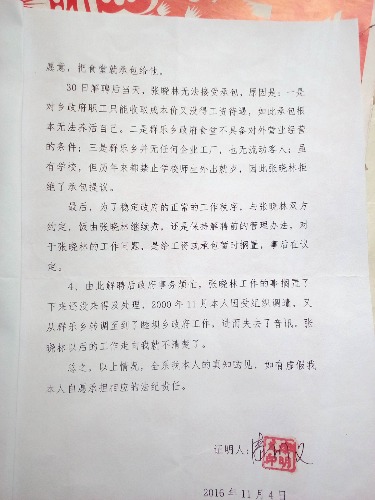 愿意，把食堂就承包给他。
30日解聘后当天，张晓林无法接受承包，原因是：一是
对乡政府职工只能收取成本价又没得工资待遇，如此承包根
本无法养活自己。二是群乐乡政府食堂不具备对外营业经营
的条件；三是群乐乡并无任何企业工厂，也无流动客人；虽
有学校，但历年来都禁止学校师生外出就歺，因此张晓林拒
绝了承包提议。
最后，为了稳定政府的正常的工作秩序，与张晓林双方
约定，饭由张晓林继续煮，还是保持解聘前的管理办法，对
于张晓林的工作问题，是给工资或承包暂时搁置，事后在议
定。
4、由此解聘后政府事务繁忙，张晓林工作的事搁置了
下来还没来得及处理，2000年11月本人因受组织调遣，又
从群乐乡转调至到了 坝乡政府工作，进而失去了音讯，张
晓林以后的工作走向我就不清楚了。
总之，以上情况，全系我本人的真知远见，如有虚假我
本人自愿承担相应的法纪责任。
证明人：
2016年11月4日